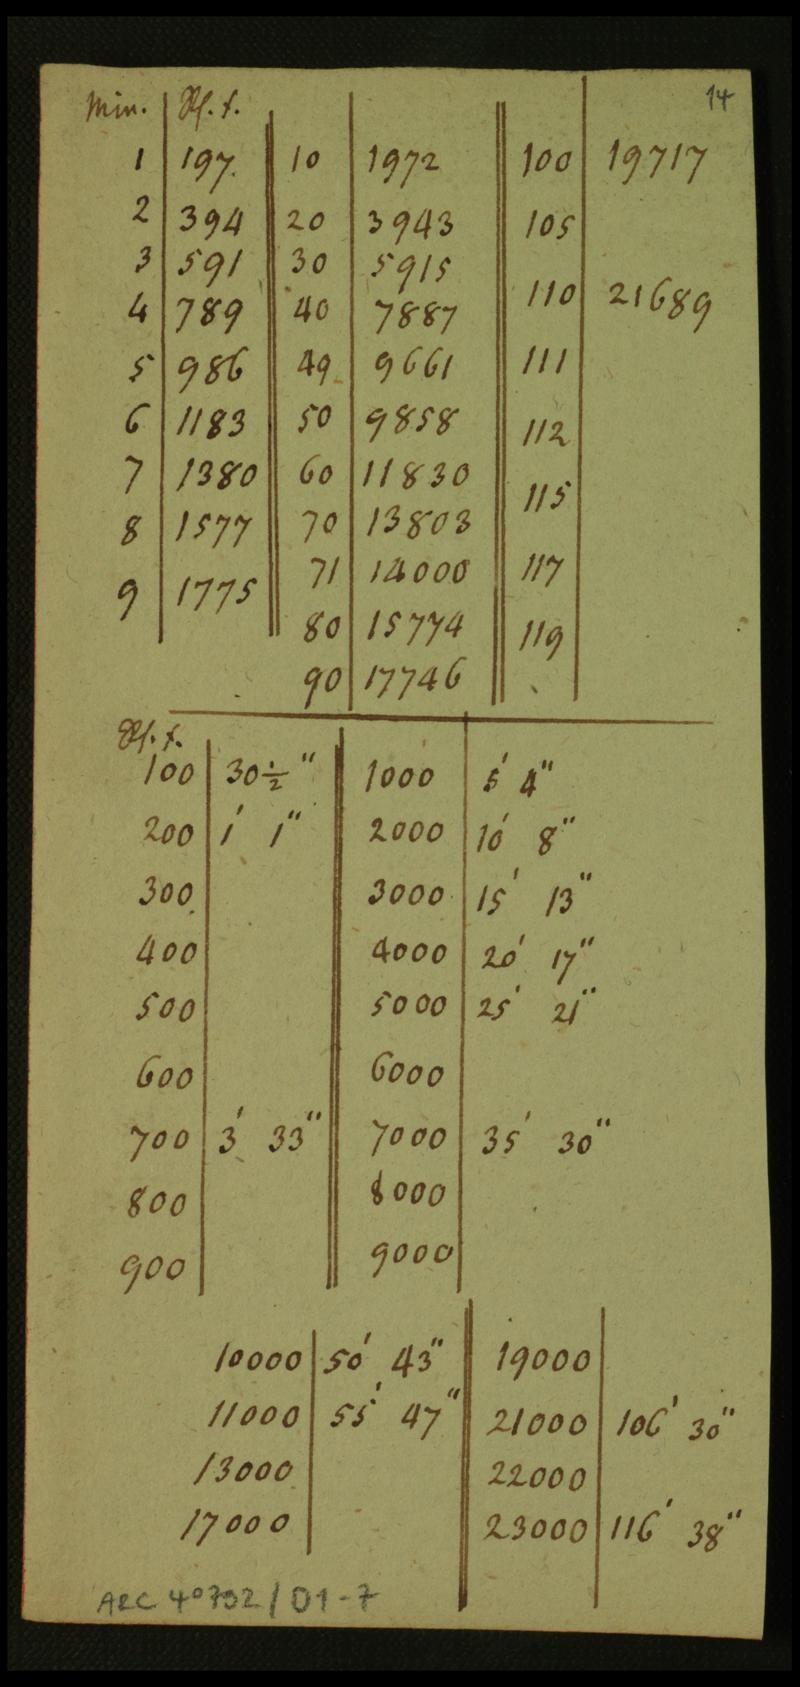 14
Min. Rf. f.
1 197. 10 1972 100 19717
2 394 20 3943 105
3 591 30 5915
4 789 40 7887 110 21689
5 986 49 9661 111
6 1183 50 9858 112
7 1380 60 11830 115
8 1577 70 13803
71 14000 117
9 1775 80 15774 119
90 17746
100 30 1/2 " 1000 5' 4"
200 1' 1" 2000 10' 8"
300 3000 15' 13"
400 4000 20' 17"
500 5000 25' 21"
600 6000
700 3' 33" 7000 35' 30"
800 8000
900 9000
10000 50' 43" 19000
11000 55' 47" 21000 106' 30"
13000 22000
17000 23000 116' 38"
ARC 40702/D1-7